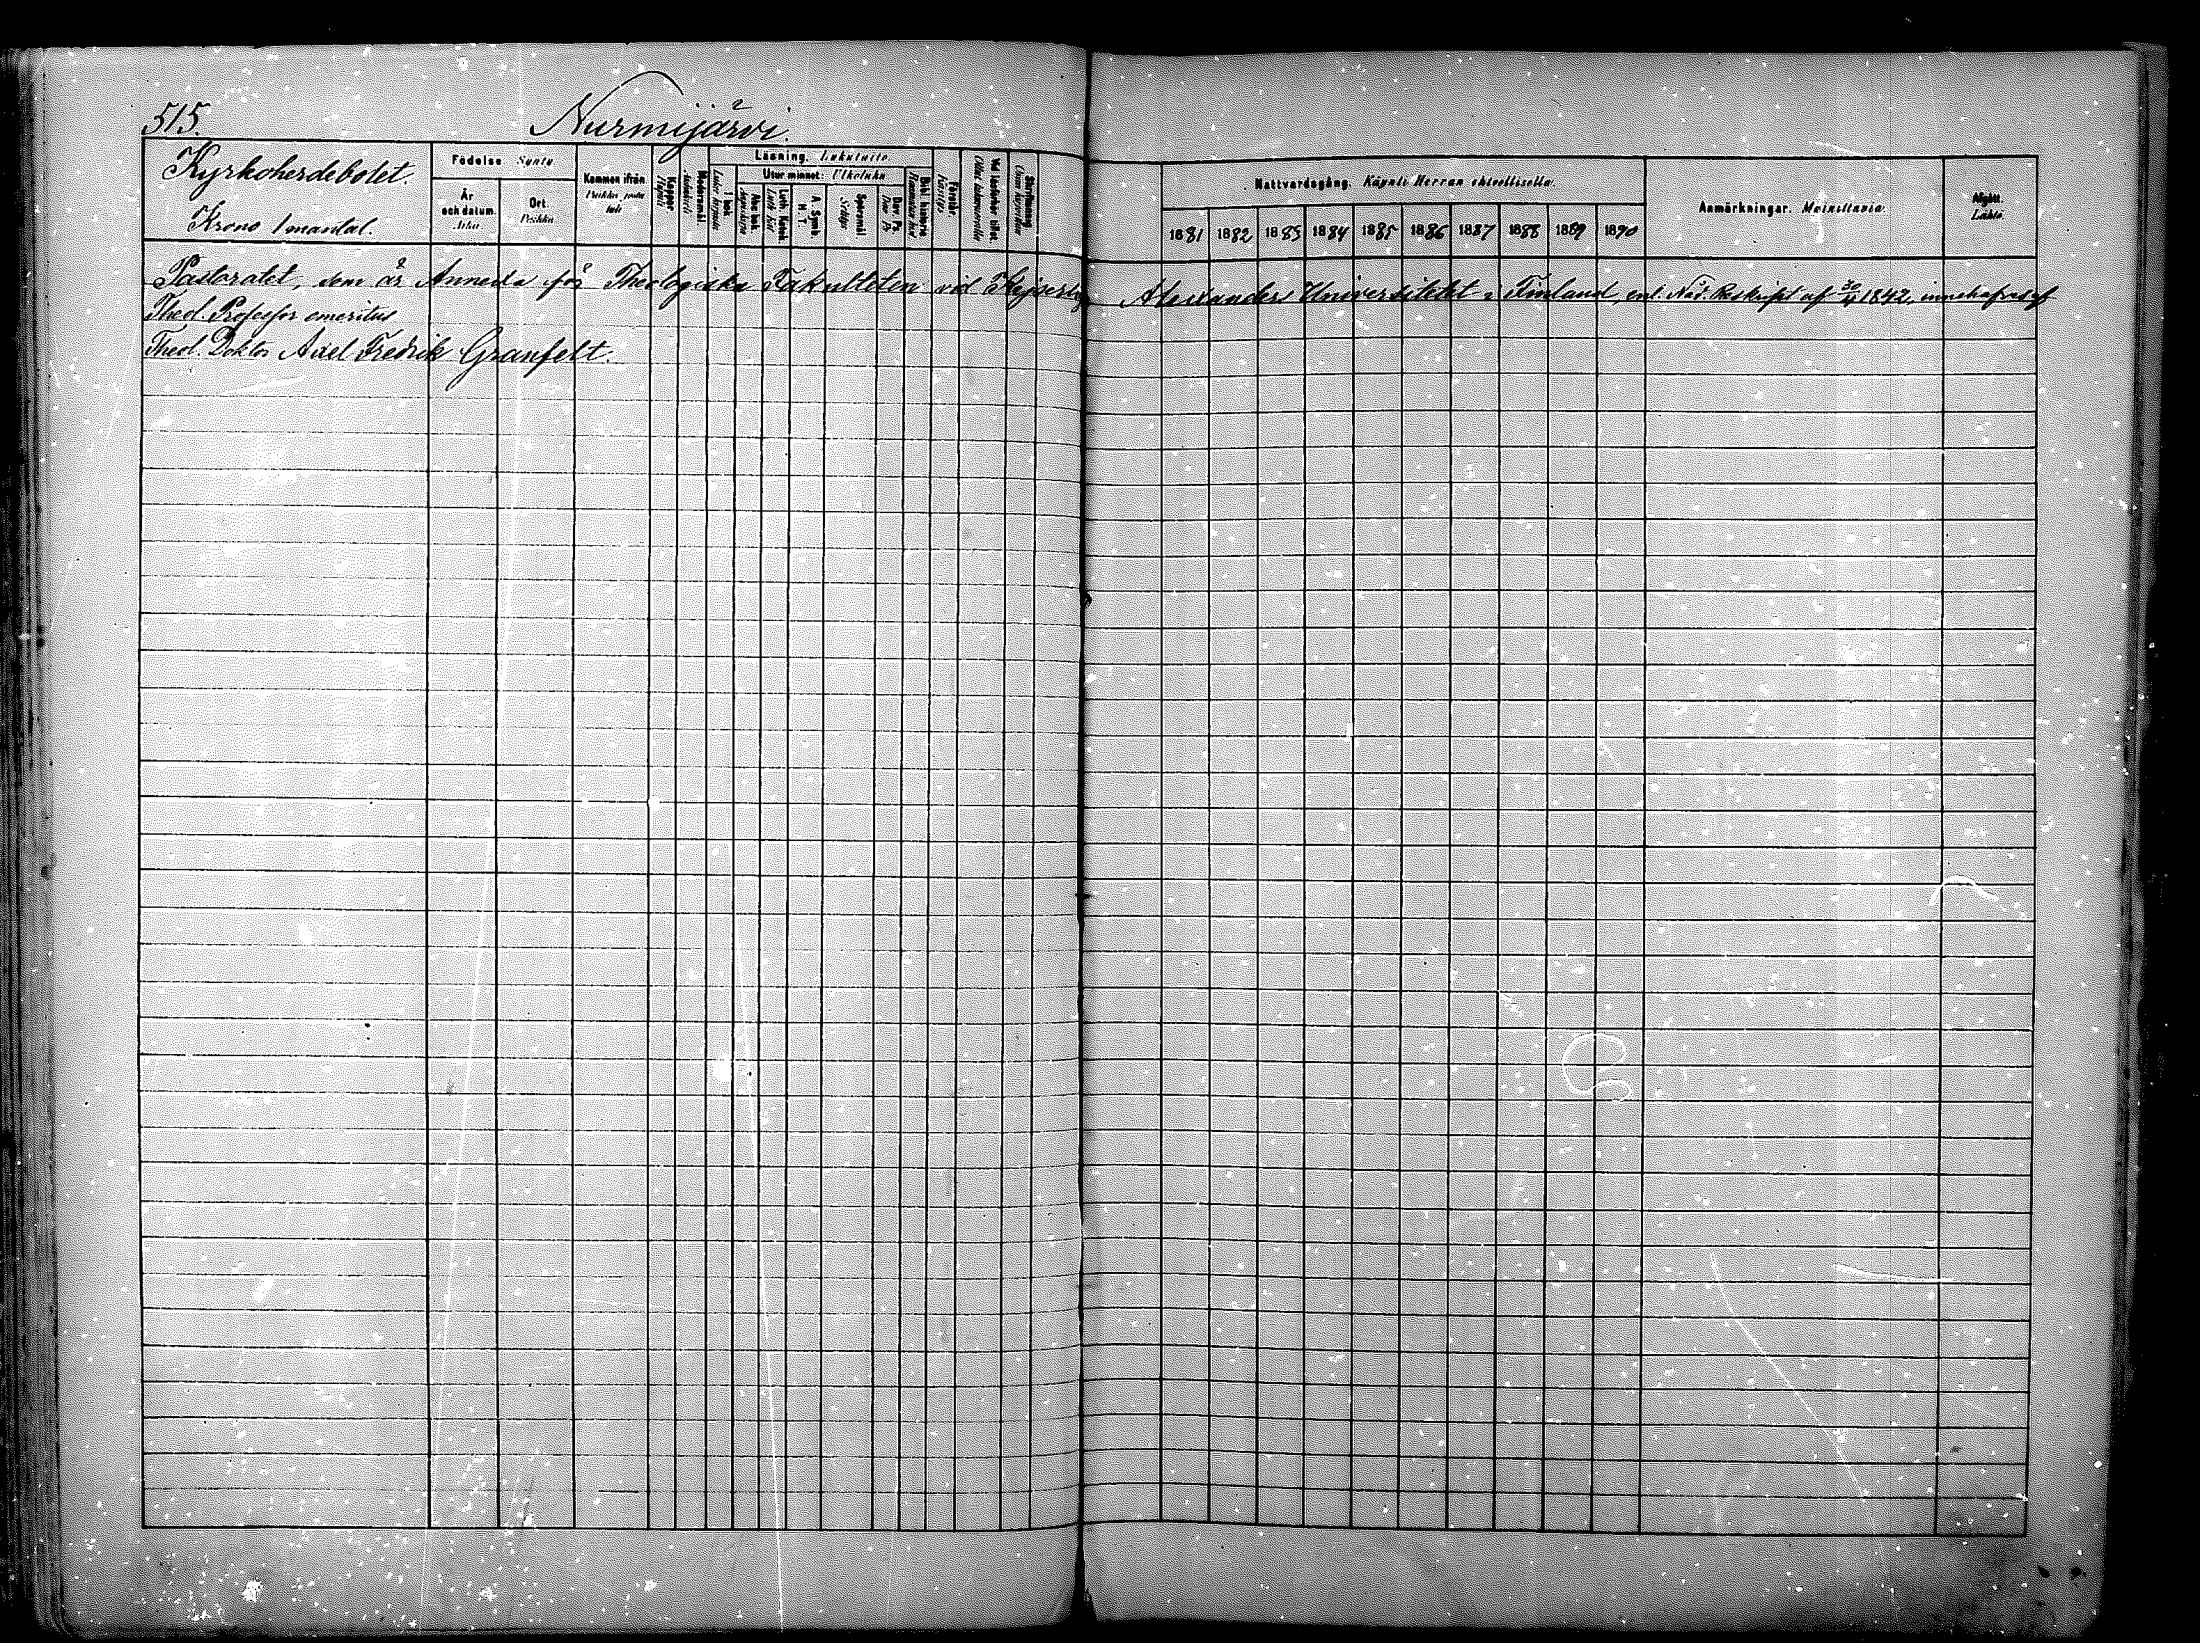 515.
Nurmijärvi.
Kyrkoherdebolet.
Krono 1 mantal.
Födelse Synty
År och datum. Aika
Ort. Paikka
Kommen ifrån
Koppor
Modersmål.
Läsning. Lukutaito
I bok
Utur minnet: Ulkoluku
Abc bok
Luth. Katek.
A. Symb. H. T.
Spörsmål
Dav. Ps.
Bibl. historie
Förstår. Käsitys
Nattvardsgång. Käynti Herran ehtoollisella.
1881 1882 1883 1884 1885 1886 1887 1888 1889 1890
Anmärkningar. Muistutuksia
Afgått. Lähtö.
Pastoratet, som är Annexta för Theologiska Fakulteten vid Kejserliga Alexanders Universitetet i Finland, enl. Nåd. Reskript af 1842, innehafves af
Theol. Professor emeritus
Theol. Doktor Axel Fredrik Granfelt.